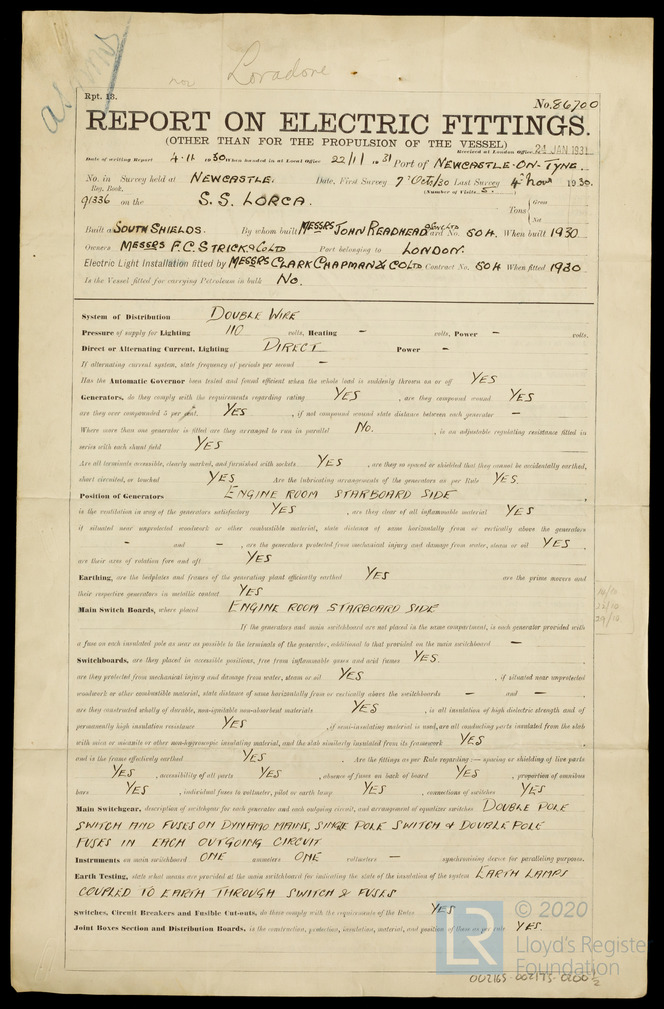 now Loradore
Rpt. 13.
No. 86700
REPORT ON ELECTRIC FITTINGS.
(OTHER THAN FOR THE PROPULSION OF THE VESSEL)
Received at London Office 24 JAN 1931
Date of writing Report 4.11.1930 When handed in at Local Office 22/1/1931 Port of NEWCASTLE-ON-TYNE
No. in Survey held at NEWCASTLE. Date, First Survey 7th Oct/30 Last Survey 4th Nov 1930.
Reg. Book. (Number of Visits 5.)
91336 on the S.S. LORCA. Tons { Gross Net
Built at SOUTH SHIELDS. By whom built MESSRS JOHN READHEAD & SONS LTD Yard No. 504. When built 1930
Owners MESSRS F.C. STRICK & CO LTD Port belonging to LONDON.
Electric Light Installation fitted by MESSRS CLARK CHAPMAN & CO LTD Contract No. 504 When fitted 1930
Is the Vessel fitted for carrying Petroleum in bulk No.
System of Distribution DOUBLE WIRE
Pressure of supply for Lighting 110 volts, Heating – volts, Power – volts.
Direct or Alternating Current, Lighting DIRECT Power –
If alternating current system, state frequency of periods per second –
Has the Automatic Governor been tested and found efficient when the whole load is suddenly thrown on or off YES
Generators, do they comply with the requirements regarding rating YES, are they compound wound YES
are they over compounded 5 per cent. YES, if not compound wound state distance between each generator –
Where more than one generator is fitted are they arranged to run in parallel No., is an adjustable regulating resistance fitted in
series with each shunt field YES
Are all terminals accessible, clearly marked, and furnished with sockets YES, are they so spaced or shielded that they cannot be accidentally earthed,
short circuited, or touched YES Are the lubricating arrangements of the generators as per Rule YES.
Position of Generators ENGINE ROOM STARBOARD SIDE
is the ventilation in way of the generators satisfactory YES, are they clear of all inflammable material YES
if situated near unprotected woodwork or other combustible material, state distance of same horizontally from or vertically above the generators
– and –, are the generators protected from mechanical injury and damage from water, steam or oil YES
are their axes of rotation fore and aft YES
Earthing, are the bedplates and frames of the generating plant efficiently earthed YES are the prime movers and
their respective generators in metallic contact YES
Main Switch Boards, where placed ENGINE ROOM STARBOARD SIDE
If the generators and main switchboard are not placed in the same compartment, is each generator provided with
a fuse on each insulated pole as near as possible to the terminals of the generator, additional to that provided on the main switchboard –
Switchboards, are they placed in accessible positions, free from inflammable gases and acid fumes YES.
are they protected from mechanical injury and damage from water, steam or oil YES, if situated near unprotected
woodwork or other combustible material, state distance of same horizontally from or vertically above the switchboards – and –
are they constructed wholly of durable, non-ignitable non-absorbent materials YES, is all insulation of high dielectric strength and of
permanently high insulation resistance YES, if semi-insulating material is used, are all conducting parts insulated from the slab
with mica or micanite or other non-hygroscopic insulating material, and the slab similarly insulated from its framework YES
and is the frame effectively earthed YES. Are the fittings as per Rule regarding:— spacing or shielding of live parts
YES, accessibility of all parts YES, absence of fuses on back of board YES, proportion of omnibus
bars YES, individual fuses to voltmeter, pilot or earth lamp YES, connections of switches YES
Main Switchgear, description of switchgear for each generator and each outgoing circuit, and arrangement of equalizer switches DOUBLE POLE
SWITCH AND FUSES ON DYNAMO MAINS, SINGLE POLE SWITCH & DOUBLE POLE
FUSES IN EACH OUTGOING CIRCUIT
Instruments on main switchboard ONE ammeters ONE voltmeters – synchronising device for paralleling purposes.
Earth Testing, state what means are provided at the main switchboard for indicating the state of the insulation of the system EARTH LAMPS
COUPLED TO EARTH THROUGH SWITCH & FUSES
Switches, Circuit Breakers and Fusible Cut-outs, do these comply with the requirements of the Rules YES
Joint Boxes Section and Distribution Boards, is the construction, protection, insulation, material, and position of these as per rule YES.
LR © 2020
Lloyd's Register
Foundation
002165-002175-0200 1/2